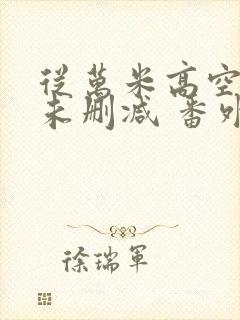 從萬米高空
未刪減 番外
徐瑞軍